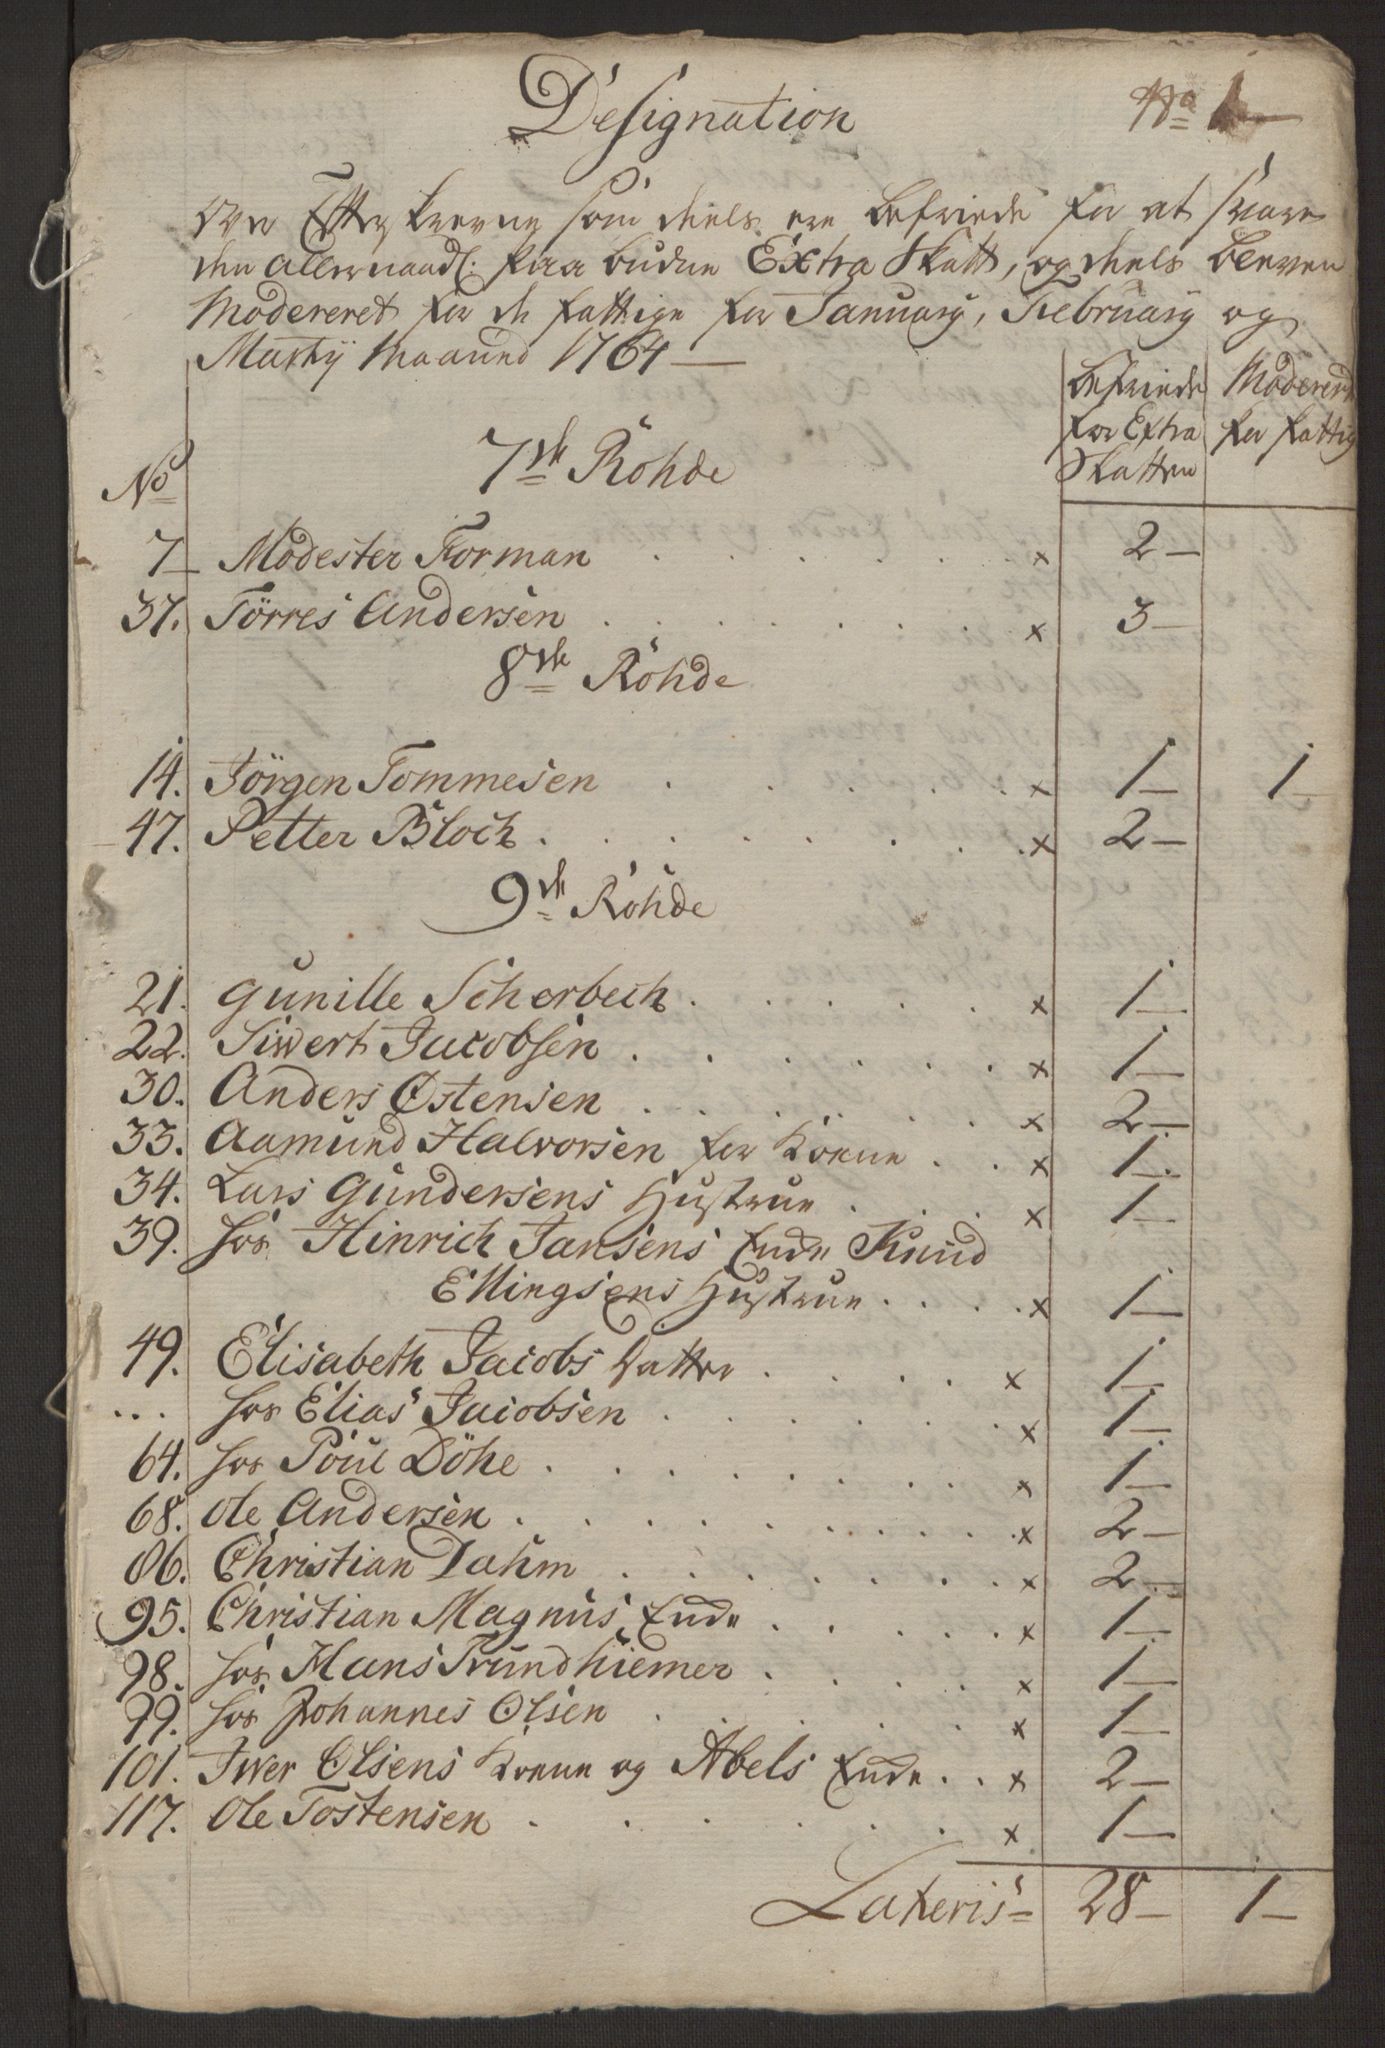 Designation
No 1
Over Efterskrevne som deels ere befriede for at svare
den allernaad: paabudne Extra Skatt, og deels bleven
Modereret for de fattige for Januarij, Februarij og
Martij Maaned 1764
No
7de Röhde
befriede for Extra Skatten
Modereret for fattig
7 Modester Forman . . . . . x 2
37. Törres Andersen . . . . . . x 3
8de Röhde
14. Jörgen Tommesen . . . . . x 1 1
47. Petter Bloch . . . . . . . x 2
9de Röhde
21. Gunille Scherbech . . . . . x 1
22. Siwert Jacobsen . . . . . . x 1
30. Anders Østensen . . . . . . x 2
33. Aamund Halvorsen for Konen . . x 1
34. Lars Gundersens Hustrue . . . x 1
39. hos Hinrich Jansens Enke Knud
Ellingsens Hustrue . . . . x 1
49. Elisabeth Jacobs Datter . . . . x 1
... hos Elias Jacobsen . . . . . . x 1
64. hos Poul Döhe . . . . . . . x 1
68. Ole Andersen . . . . . . . . x 2
86. Christian Dahm . . . . . . . x 2
95. Christian Magnus Enke . . . . . x 1
98. hos Hans Trundhiemer . . . . x 1
99. hos Johannes Olsen . . . . . x 1
101. Iwer Olsens Konen og Abels Enke . . x 2
117. Ole Tostensen . . . . . . x 1
Lateris 28 1